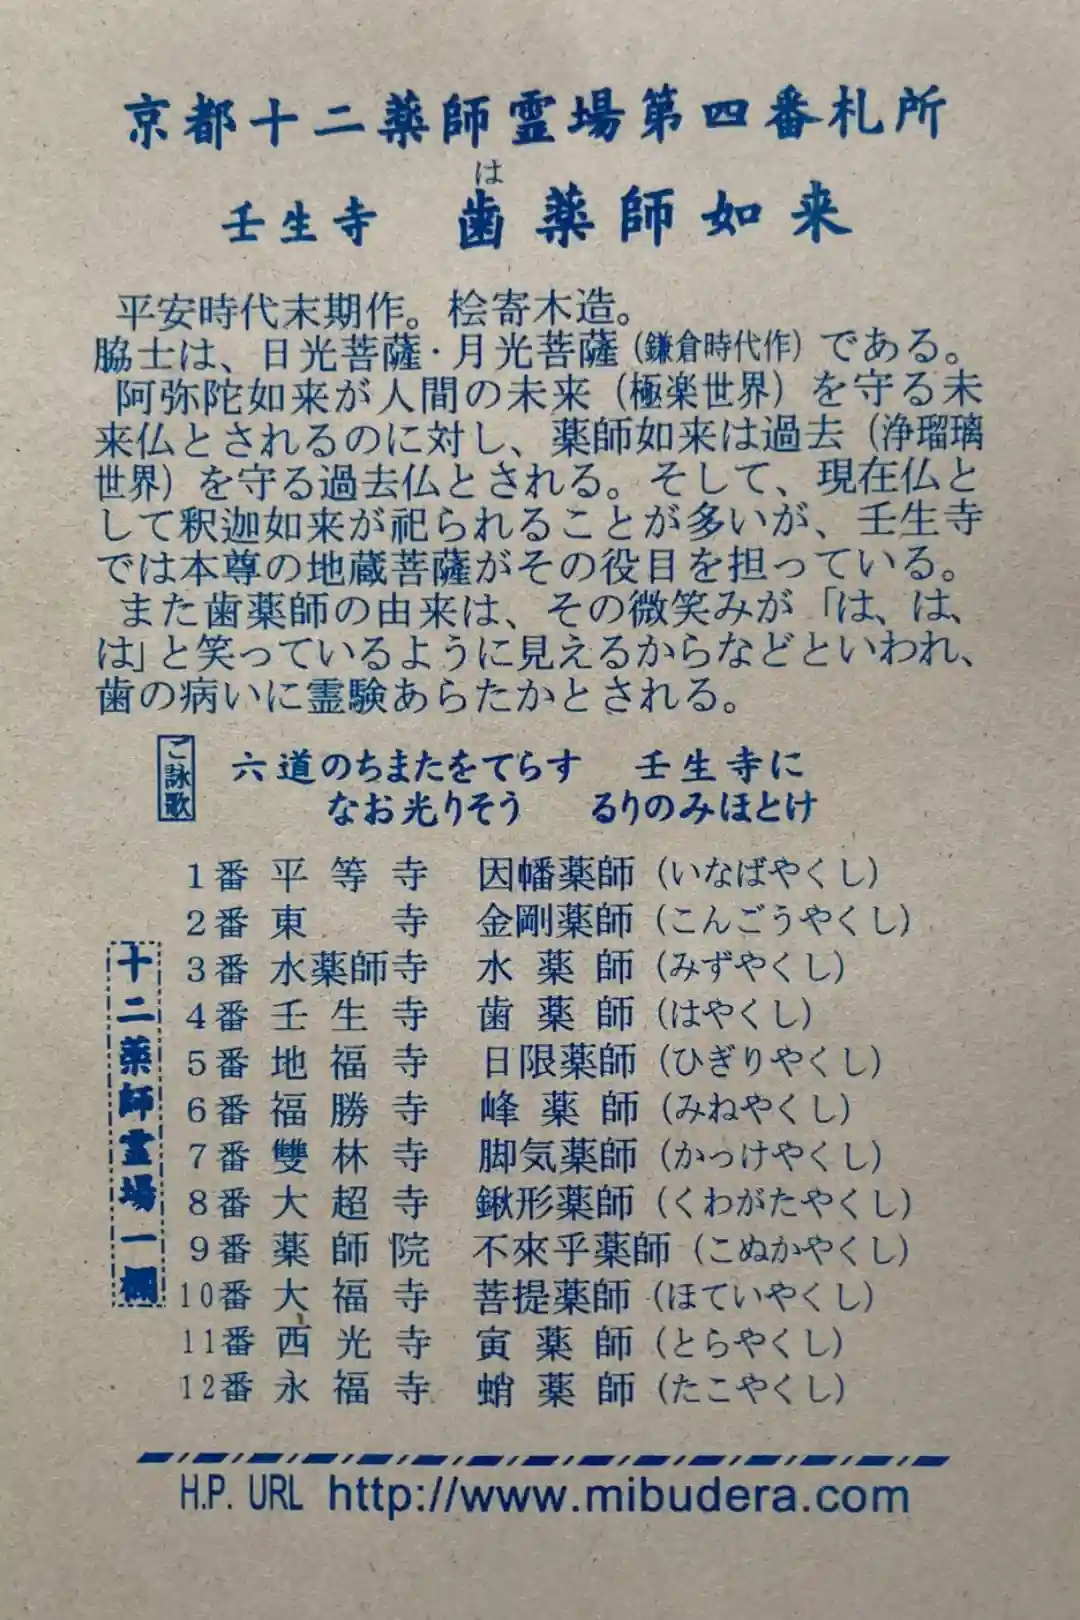 京都十二薬師霊場第四番札所
は
壬生寺 歯薬師如来
平安時代末期作。桧寄木造。
脇士は、日光菩薩・月光菩薩(鎌倉時代作)である。
阿弥陀如来が人間の未来(極楽世界)を守る未
来仏とされるのに対し、薬師如来は過去(浄瑠璃
世界)を守る過去仏とされる。そして、現在仏と
して釈迦如来が祀られることが多いが、壬生寺
では本尊の地蔵菩薩がその役目を担っている。
また歯薬師の由来は、その微笑みが「は、は、
は」と笑っているように見えるからなどといわれ、
歯の病いに霊験あらたかとされる。
ご詠歌
六道のちまたをてらす 壬生寺に
なお光りそう るりのみほとけ
十二薬師霊場一欄
1番 平等寺 因幡薬師(いなばやくし)
2番 東寺 金剛薬師(こんごうやくし)
3番 水薬師寺 水薬師(みずやくし)
4番 壬生寺 歯薬師(はやくし)
5番 地福寺 日限薬師(ひぎりやくし)
6番 福勝寺 峰薬師(みねやくし)
7番 雙林寺 脚気薬師(かっけやくし)
8番 大超寺 鍬形薬師(くわがたやくし)
9番 薬師院 不來乎薬師(こぬかやくし)
10番 大福寺 菩提薬師(ほていやくし)
11番 西光寺 寅薬師(とらやくし)
12番 永福寺 蛸薬師(たこやくし)
H.P. URL http://www.mibudera.com